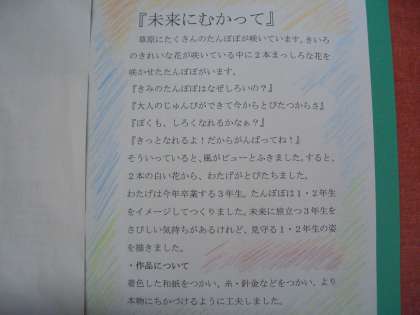 『未来にむかって』
草原にたくさんのたんぽぽが咲いています。きいろ
のきれいな花が咲いている中に２本まっしろな花を
咲かせたたんぽぽがいます。
『きみのたんぽぽはなぜしろいの？』
『大人のじゅんびができて今からとびたつからさ』
『ぼくも、しろくなれるかなぁ？』
『きっとなれるよ！だからがんばってね！』
そういっていると、風がビューとふきました。すると、
２本の白い花から、わたげがとびたちました。
わたげは今年卒業する３年生。たんぽぽは１・２年生
をイメージしてつくりました。未来に旅立つ３年生を
さびしい気持ちがあるけれど、見守る１・２年生の姿
を描きました。
・作品について
着色した和紙をつかい、糸・針金などをつかい、より
本物にちかづけるように工夫しました。